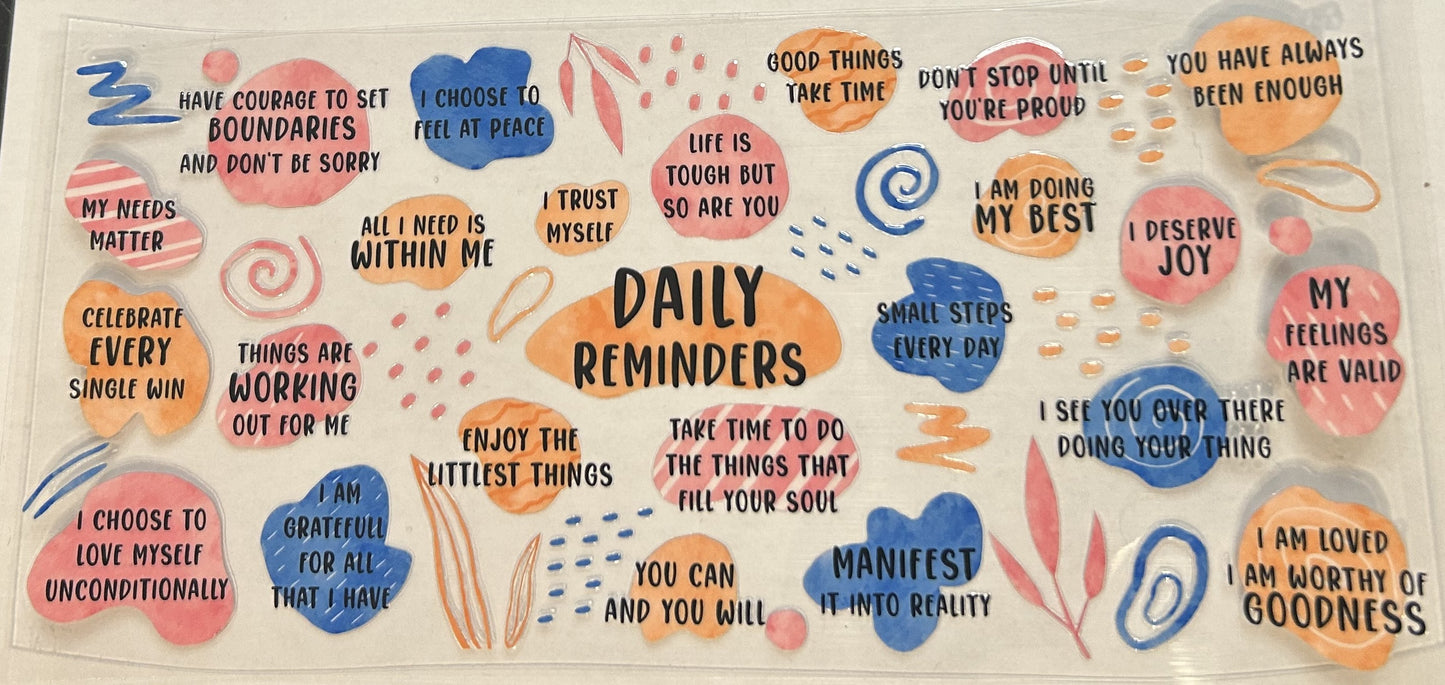 HAVE COURAGE TO SET
BOUNDARIES
AND DON'T BE SORRY
I CHOOSE TO
FEEL AT PEACE
GOOD THINGS
TAKE TIME
DON'T STOP UNTIL
YOU'RE PROUD
YOU HAVE ALWAYS
BEEN ENOUGH
MY NEEDS
MATTER
ALL I NEED IS
WITHIN ME
I TRUST
MYSELF
LIFE IS
TOUGH BUT
SO ARE YOU
I AM DOING
MY BEST
I DESERVE
JOY
CELEBRATE
EVERY
SINGLE WIN
THINGS ARE
WORKING
OUT FOR ME
DAILY
REMINDERS
SMALL STEPS
EVERY DAY
MY
FEELINGS
ARE VALID
ENJOY THE
LITTLEST THINGS
TAKE TIME TO DO
THE THINGS THAT
FILL YOUR SOUL
I SEE YOU OVER THERE
DOING YOUR THING
I CHOOSE TO
LOVE MYSELF
UNCONDITIONALLY
I AM
GRATEFULL
FOR ALL
THAT I HAVE
YOU CAN
AND YOU WILL
MANIFEST
IT INTO REALITY
I AM LOVED
I AM WORTHY OF
GOODNESS